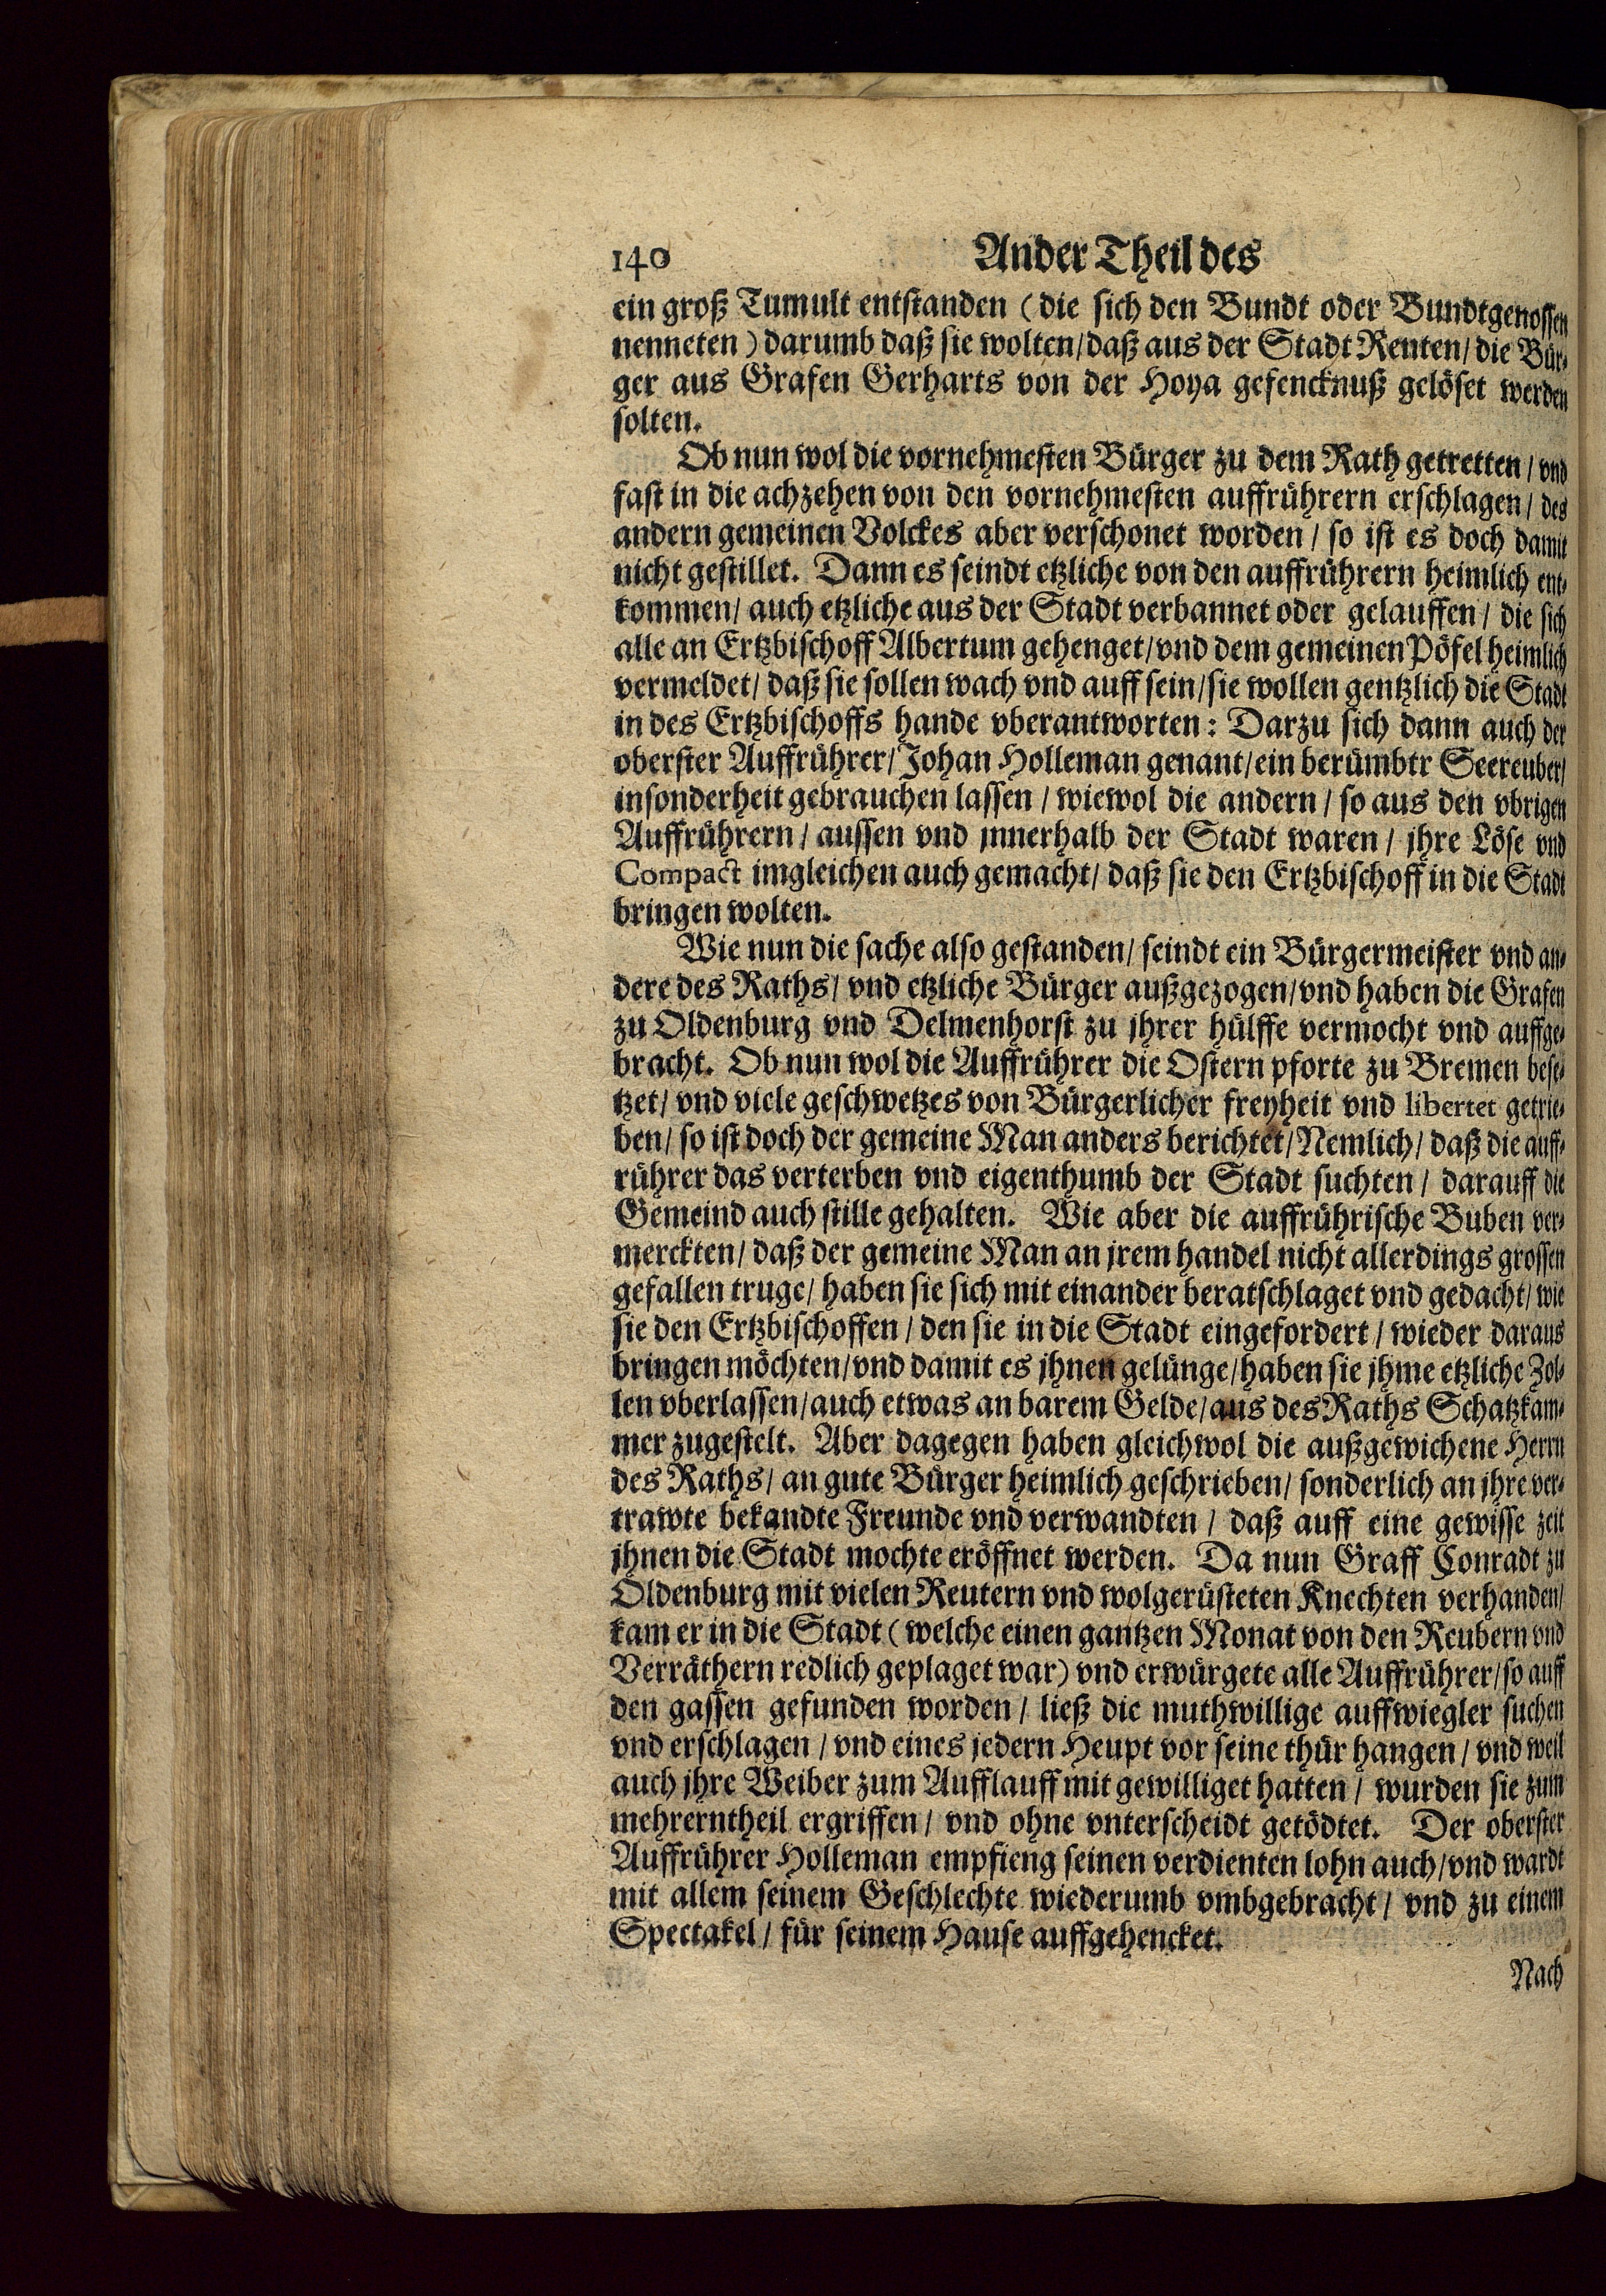 140 Ander Theil des
ein groß Tumult entstanden (die sich den Bundt oder Bundtgenossen
nenneten) darumb daß sie wolten/daß aus der Stadt Renten/ die Bür-
ger aus Grafen Gerharts von der Hoya gefencknuß gelöset werden
solten.
Ob nun wol die vornehmesten Bürger zu dem Rath getretten/ vnd
fast in die achzehen von den vornehmesten auffrührern erschlagen/ des
andern gemeinen Volckes aber verschonet worden/ so ist es doch damit
nicht gestillet. Dann es seindt etzliche von den auffrührern heimlich ent-
kommen/ auch etzliche aus der Stadt verbannet oder gelauffen/ die sich
alle an Ertzbischoff Albertum gehenget/vnd dem gemeinen Pöfel heimlich
vermeldet/ daß sie sollen wach vnd auff sein/sie wollen gentzlich die Stadt
in des Ertzbischoffs hande vberantworten: Darzu sich dann auch der
oberster Auffrührer/Johan Holleman genant/ein berümbtr Seereuber/
insonderheit gebrauchen lassen/ wiewol die andern/ so aus den vbrigen
Auffrührern/ aussen vnd jnnerhalb der Stadt waren/ jhre Löse vnd
Compact imgleichen auch gemacht/ daß sie den Ertzbischoff in die Stadt
bringen wolten.
Wie nun die sache also gestanden/ seindt ein Bürgermeister vnd an-
dere des Raths/ vnd etzliche Bürger außgezogen/vnd haben die Grafen
zu Oldenburg vnd Delmenhorst zu jhrer hülffe vermocht vnd auffge-
bracht. Ob nun wol die Auffrührer die Ostern pforte zu Bremen bese-
tzet/ vnd viele geschwetzes von Bürgerlicher freyheit vnd libertet getrie-
ben/ so ist doch der gemeine Man anders berichtet/Nemlich/ daß die auff-
rührer das verterben vnd eigenthumb der Stadt suchten/ darauff die
Gemeind auch stille gehalten. Wie aber die auffrührische Buben ver-
merckten/ daß der gemeine Man an jrem handel nicht allerdings grossen
gefallen truge/ haben sie sich mit einander beratschlaget vnd gedacht/ wie
sie den Ertzbischoffen/ den sie in die Stadt eingefordert/ wieder daraus
bringen möchten/vnd damit es jhnen gelünge/haben sie jhme etzliche Zol-
len vberlassen/auch etwas an barem Gelde/aus des Raths Schatzkam-
mer zugestelt. Aber dagegen haben gleichwol die außgewichene Herrn
des Raths/ an gute Bürger heimlich geschrieben/ sonderlich an jhre ver-
trawte bekandte Freunde vnd verwandten/ daß auff eine gewisse zeit
jhnen die Stadt mochte eröffnet werden. Da nun Graff Conradt zu
Oldenburg mit vielen Reutern vnd wolgerüsteten Knechten verhanden/
kam er in die Stadt (welche einen gantzen Monat von den Reubern vnd
Verräthern redlich geplaget war) vnd erwürgete alle Auffrührer/so auff
den gassen gefunden worden/ ließ die muthwillige auffwiegler suchen
vnd erschlagen/ vnd eines jedern Heupt vor seine thür hangen/ vnd weil
auch jhre Weiber zum Aufflauff mit gewilliget hatten/ wurden sie zum
mehrerntheil ergriffen/ vnd ohne vnterscheidt getödtet. Der oberster
Auffrührer Holleman empfieng seinen verdienten lohn auch/vnd wardt
mit allem seinem Geschlechte wiederumb vmbgebracht/ vnd zu einem
Spectakel/ für seinem Hause auffgehencket.
Nach